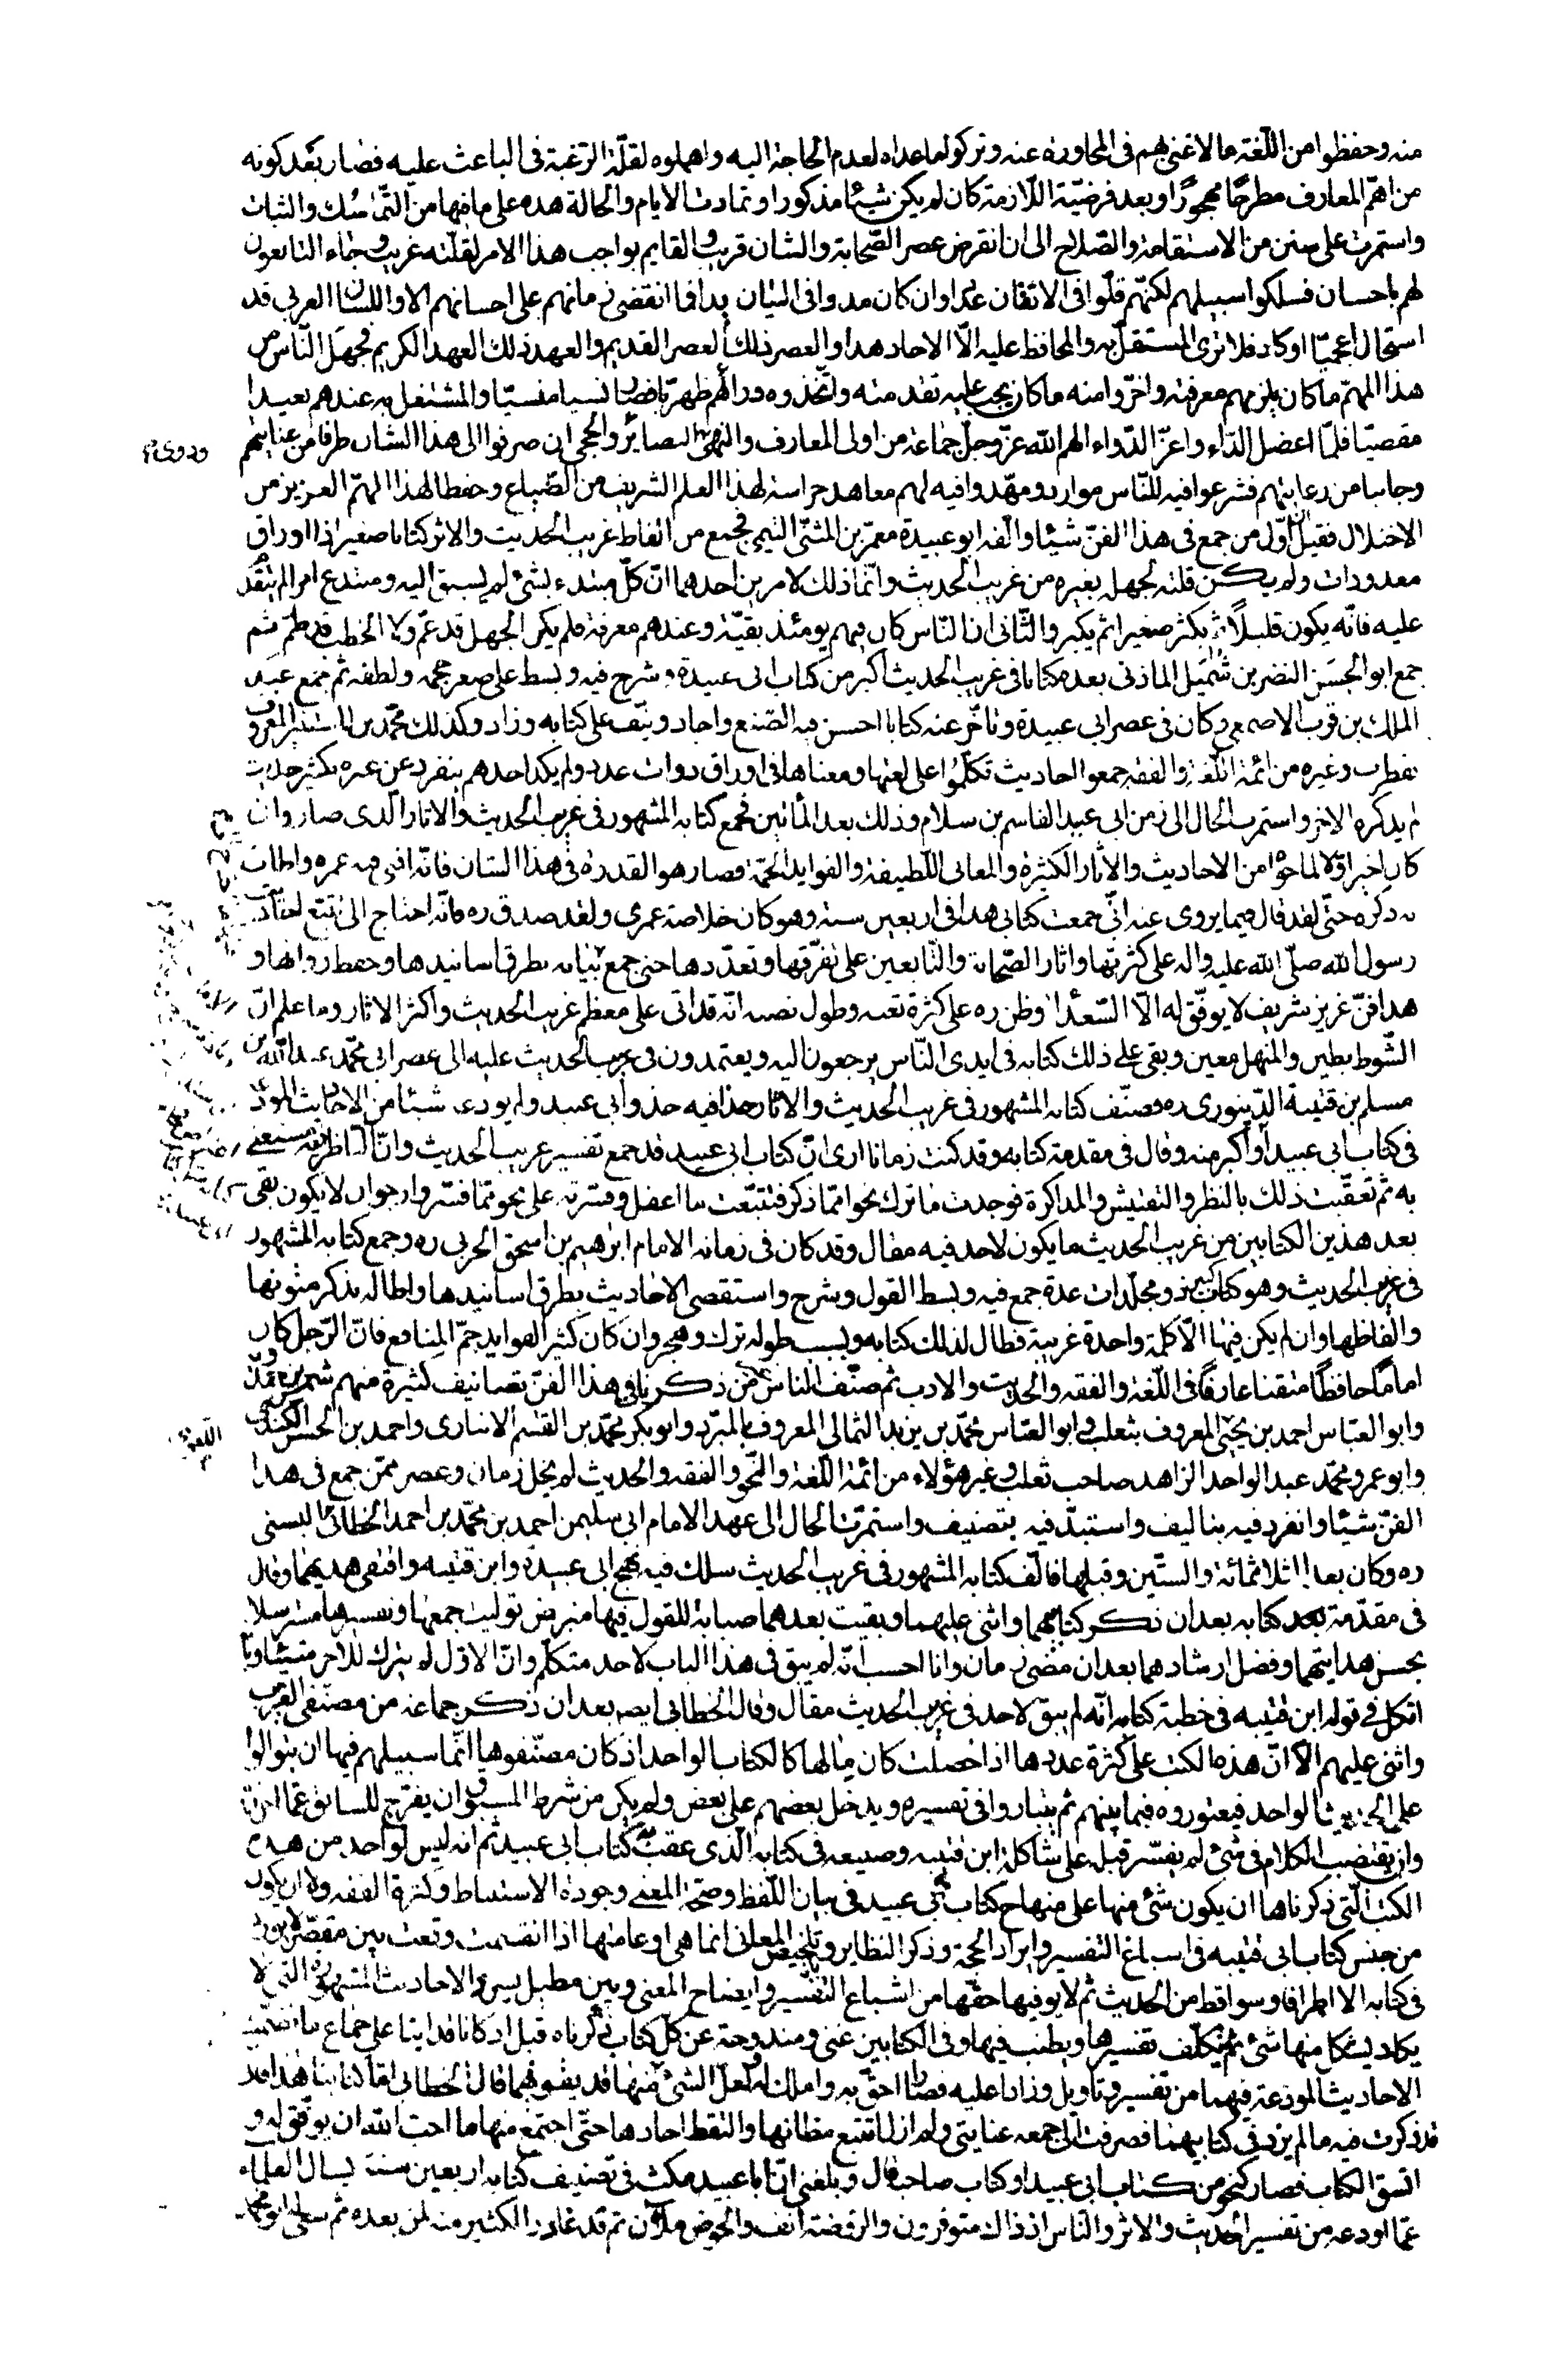 منه وحفظوا من اللّغة ما لا غنى بهم فى المحاورة عنه وتركوا ما عداه لعدم الحاجة اليه واهملوه لقلّة الرّغبة فى الباعث عليه فصار بعد كونه
من اهمّ المعارف مطرحًا مهجورًا وبعد فرضيّة اللّازمة كان لم يكن شيئا مذكورا وتمادت الايام والحالة هذه على ما فيها من التّماسك والثبات
واستمرت على سنن من الاستقامة والصّلاح الى ان انقرض عصر الصّحابة والشان قريب والقايم بواجب هذا الامر لقلّته غريب وجاء التابعون
لهم باحسان فسلكوا سبيلهم لكنّهم قلّوا فى الاتقان عددا وان كان مدوا فى البيان يدا فما انقضى زمانهم على احسانهم الا واللسان العربى قد
استحال اعجميّا او كاد فلا ترى المستقلّ به والمحافظ عليه الّا الاحاد هذا والعصر ذلك العصر القديم والعهد ذلك العهد الكريم فجهل النّاس من
هذا المهمّ ما كان يلزمهم معرفته واخّروا منه ما كان يجب عليه تقدمته واتّخذوه وراءهم ظهريّا فصار نسيا منسيّا والمشتغل به عندهم بعيدا
مقصيّا فلمّا اعضل الدّاء واعزّ الدّواء الهم الله عزّ وجلّ جماعة من اولى المعارف والنهى البصائر والحجى ان صرفوا الى هذا الشان طرفا من عنايتهم
وجانبا من رعايتهم فشرعوا فيه للنّاس موارد ومهّدوا فيه لهم معاهد حراسة لهذا العلم الشريف من الضّياع وحفظا لهذا المهمّ العزيز من
الاختلال فقيل انّ اوّل من جمع فى هذا الفنّ شيئا والّفه ابو عبيدة معمّر بن المثنّى التيمى فجمع من الفاظ غريب الحديث والاثر كتابا صغيرا ذا اوراق
معدودات ولم يكن قلته لجهله بغيره من غريب الحديث وانّما ذلك لامرين احدهما انّ كلّ مبتدء بشئ لم يسبق اليه ومبتدع امر لم يتقدّم
عليه فانّه يكون قليلاً ثم يكثر صغيرا ثم يكبر والثّانى ان النّاس كان فيهم يومئذ بقيّة وعندهم معرفة فلم يكن الجهل قد عمّ ولا الخطب قد طمّ ثم
جمع ابو الحسن النضر بن شُمَيل المازنى بعده كتابا فى غريب الحديث اكبر من كتاب ابى عبيدة وشرح فيه وبسط على صغر حجمه ولطفه ثم جمع عبد
الملك بن قريب الاصمعى وكان فى عصر ابى عبيدة وتاخّر عنه كتابا احسن فيه الصّنع واجاد ونيّف على كتابه وزاد وكذلك محمّد بن المستنير المعروف
بقطرب وغيره من ائمة اللّغة والفقه جمعوا احاديث تكلّموا على لغتها ومعناها فى اوراق ذوات عدد ولم يكد احدهم ينفرد عن غيره بكثير حديث
لم يذكره الاخر واستمرت الحال الى زمن ابى عبيد القاسم بن سلام وذلك بعد المأتين فجمع كتابه المشهور فى غريب الحديث والاثار الّذى صار وان
كان اخيرا اوّلا لما حواه من الاحاديث والاثار الكثيرة والمعانى اللّطيفة والفوايد الجمّة فصار هو القدوة فى هذا الشان فانّه افنى فيه عمره واطاب
به ذكره حتّى لقد قال فيما يروى عنه انّى جمعت كتابى هذا فى اربعين سنة وهو كان خلاصة عمرى ولقد صدق ره فانّه احتاج الى تتبّع احاديث
رسول الله صلّى الله عليه واله على كثرتها واثار الصّحابة والتّابعين على تفرّقها وتعدّدها حتى جمع بيانه بطرق اسانيدها وحفظ رواتها و
هذا فنّ غزيز شريف لا يوفّق له الّا السّعداء وظن ره على كثرة تعبه وطول نصبه انّه قد اتى على معظم غريب الحديث واكثر الاثار وما علم انّ
الشّوط بطين والمنهل معين وبقى على ذلك كتابه فى ايدى النّاس يرجعون اليه ويعتمدون فى غريب الحديث عليه الى عصر ابى محمّد عبد اللّه بن
مسلم بن قتيبة الدّينورى ره وصنّف كتابه المشهور فى غريب الحديث والاثار حذا فيه حذو ابى عبيد ولم يودعه شيئا من الاحاديث المودعة
فى كتاب ابى عبيد او اكبر منه وقال فى مقدمة كتابه وقد كنت زمانا ارى انّ كتاب ابى عبيد قد جمع تفسير غريب الحديث وانّ الناظر فيه مستغنى
به ثم تعقّبت ذلك بالنظر والتفتيش والمذاكرة فوجدت ما ترك نحوا ممّا ذكر فتتبّعت ما اغفل وفسّرته على نحو ممّا فسّر وارجو ان لا يكون بقى
بعد هذين الكتابين من غريب الحديث ما يكون لاحد فيه مقال وقد كان فى زمانه الامام ابرهيم بن اسحق الحربى ره وجمع كتابه المشهور
فى غريب الحديث وهو كتاب كبير ذو مجلّدات عدة جمع فيه وبسط القول وشرح واستقصى الاحاديث بطرق اسانيدها واطاله بذكر متونها
والفاظها وان لم يكن فيها الّا كلمة واحدة غريبة فطال لذلك كتابه وبسبب طوله ترك وهجر وان كان كثير الفوايد جمّ المنافع فانّ الرّجل كان
امامًا حافظًا متقنا عارفًا فى اللّغة والفقه والحديث والادب ثم صنّف الناس غير من ذكرنا فى هذا الفنّ تصانيف كثيرة منهم شمر بن حمدويه
وابو العبّاس احمد بن يحيى المعروف بثعلب وابو العبّاس محمّد بن يزيد الثمالى المعروف بالمبرّد وابو بكر محمّد بن القسم الانبارى واحمد بن الحسن الكندى
وابو عمرو محمّد عبد الواحد الزاهد صاحب ثعلب وغير هؤلاء من ائمة اللّغة والنّحو والفقه والحديث لم يخل زمان وعصر ممّن جمع فى هذا
الفنّ شيئا وانفرد فيه بتاليف واستبدّ فيه بتصنيف واستمرّت الحال الى عهد الامام ابى سليمن احمد بن محمّد بن احمد الخطّابى البستى
ره وكان بعد الثلاثمائة والستّين وقبلها فالّف كتابه المشهور فى غريب الحديث سلك فيه نهج ابى عبيدة وابن قتيبه واقتفى هديهما وقال
فى مقدّمة كتابه بعد ان ذكر كتابيهما واثنى عليهما وبقيت بعدهما صبابة للقول فيها متبرض توليت جمعها وتفسيرها مسترسلا
بحسن هدايتهما وفضل ارشادهما بعد ان مضى زمان وانا احسب انّه لم يبق فى هذا الباب لاحد متكلّم وانّ الاوّل لم يترك للاخر شيئا وانّا
اتكل فى قوله ابن قتيبه فى خطبة كتابه انّه لم يبق لاحد فى غريب الحديث مقال وقال الخطابى ايضه بعد ان ذكر جماعة من مصنّفى الغريب
واثنى عليهم الا انّ هذه الكتب على كثرة عددها اذا حصلت كان مآلها كالكتاب الواحد اذ كان مصنّفوها انّما سبيلهم فيها ان يتوالوا
على الحديث الواحد فيعتوروه فيما بينهم ثم يتباروا فى تفسيره ويدخل بعضهم على بعض ولم يكن من شرط المسبوق ان يفرّج للسابق عمّا احرزه
وان يقتضب الكلام فى شئ لم يفسّر قبله على شاكلة ابن قتيبه وصنيعه فى كتابه الّذى عقب به كتاب ابى عبيد ثم انه ليس لواحد من هذه
الكتب الّتى ذكرناها ان يكون شئ منها على منهاج كتاب ابى عبيد فى بيان اللّفظ وصحّة المعنى وجودة الاستنباط وكثرة الفقه ولا ان يكون
من جنس كتاب ابى قتيبه فى اسباغ التفسير وايراد الحجّة وذكر النظاير وتلخيص المعانى انما هى او عامتها اذا انقسمت وقعت بين مقصّر لا يورد
فى كتابه الا اطرافا وسواقط من الحديث ثم لا يوفيها حقّها من اشباع التّفسير وايضاح المعنى وبين مطيل يسرد الاحاديث المشهورة التى لا
يكاد يشكل منها شئ ثم يتكلّف تفسيرها ويطنب فيها وفى الكتابين غنى ومندوحة عن كل كتاب ذكرناه قبل اذ كانا قد اتيا على جماع ما تضمّنت
الاحاديث المودعة فيهما من تفسير وتاويل وزادا عليه فصارا احقّ به واملك له ولعلّ الشئ منها قد يفوتهما قال الخطابى امّا كتابنا هذا فقد
قد ذكرت فيه ما لم يرد فى كتابيهما فصرفت الى جمعه عنايتى ولم ازل اتتبّع مظانها والتقط احادها حتّى اجتمع منها ما احبّ اللّه ان يوفّق له و
اتسق الكتاب فصار كنحو من كتاب ابى عبيد او كتاب صاحبه قال وبلغنى انّ ابا عبيد مكث فى تصنيف كتابه اربعين سنة يسال العلماء
عمّا اودعه من تفسير الحديث والاثر والنّاس اذ ذاك متوفرون والروضة انف والحوض ملآن ثم قد غادر الكثير منه لمن بعده ثم سعى ابو محمد